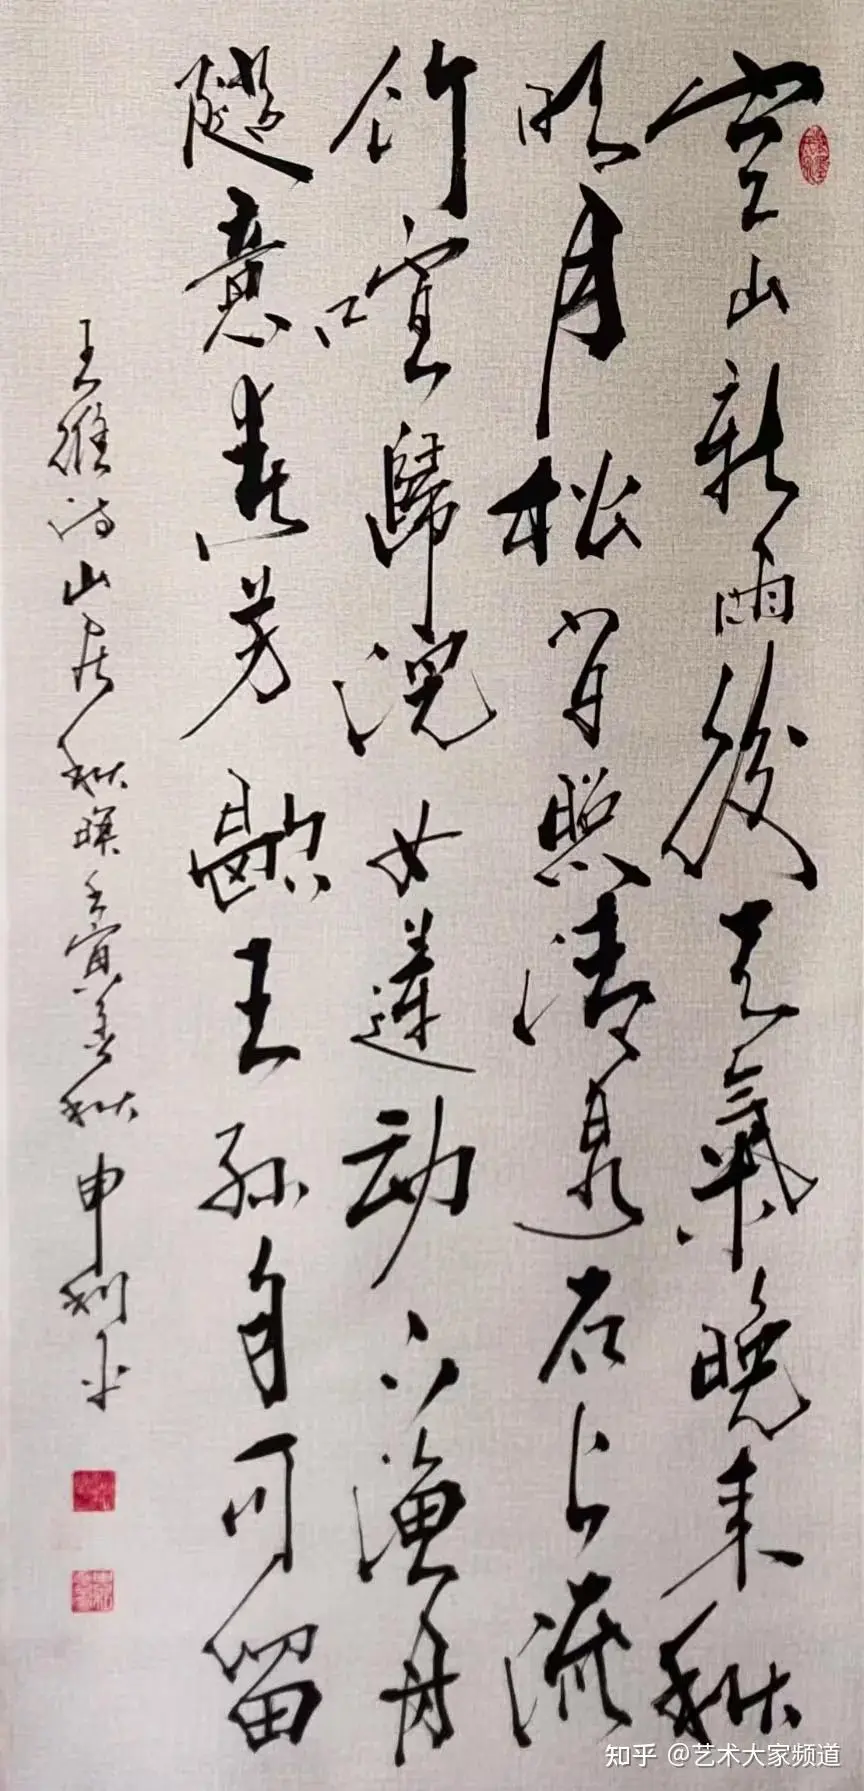 空山新雨後天氣晚来秋
明月松间照清泉石上流
竹喧歸浣女蓮动下漁舟
隨意春芳歇王孙自可留
王維诗山居秋暝壬寅秋申利平
知乎 @艺术大家频道